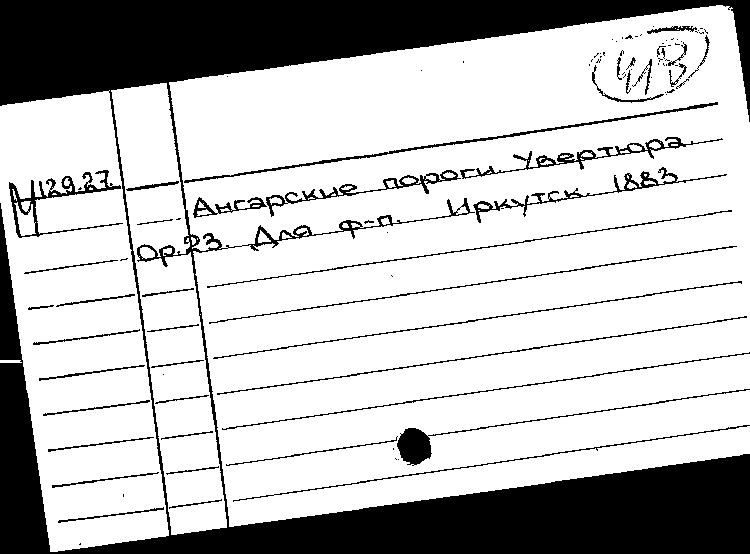 М 129.27.
Ангарские пороги. Увертюра.
Op.23. Для ф-п. Иркутск. 1883.